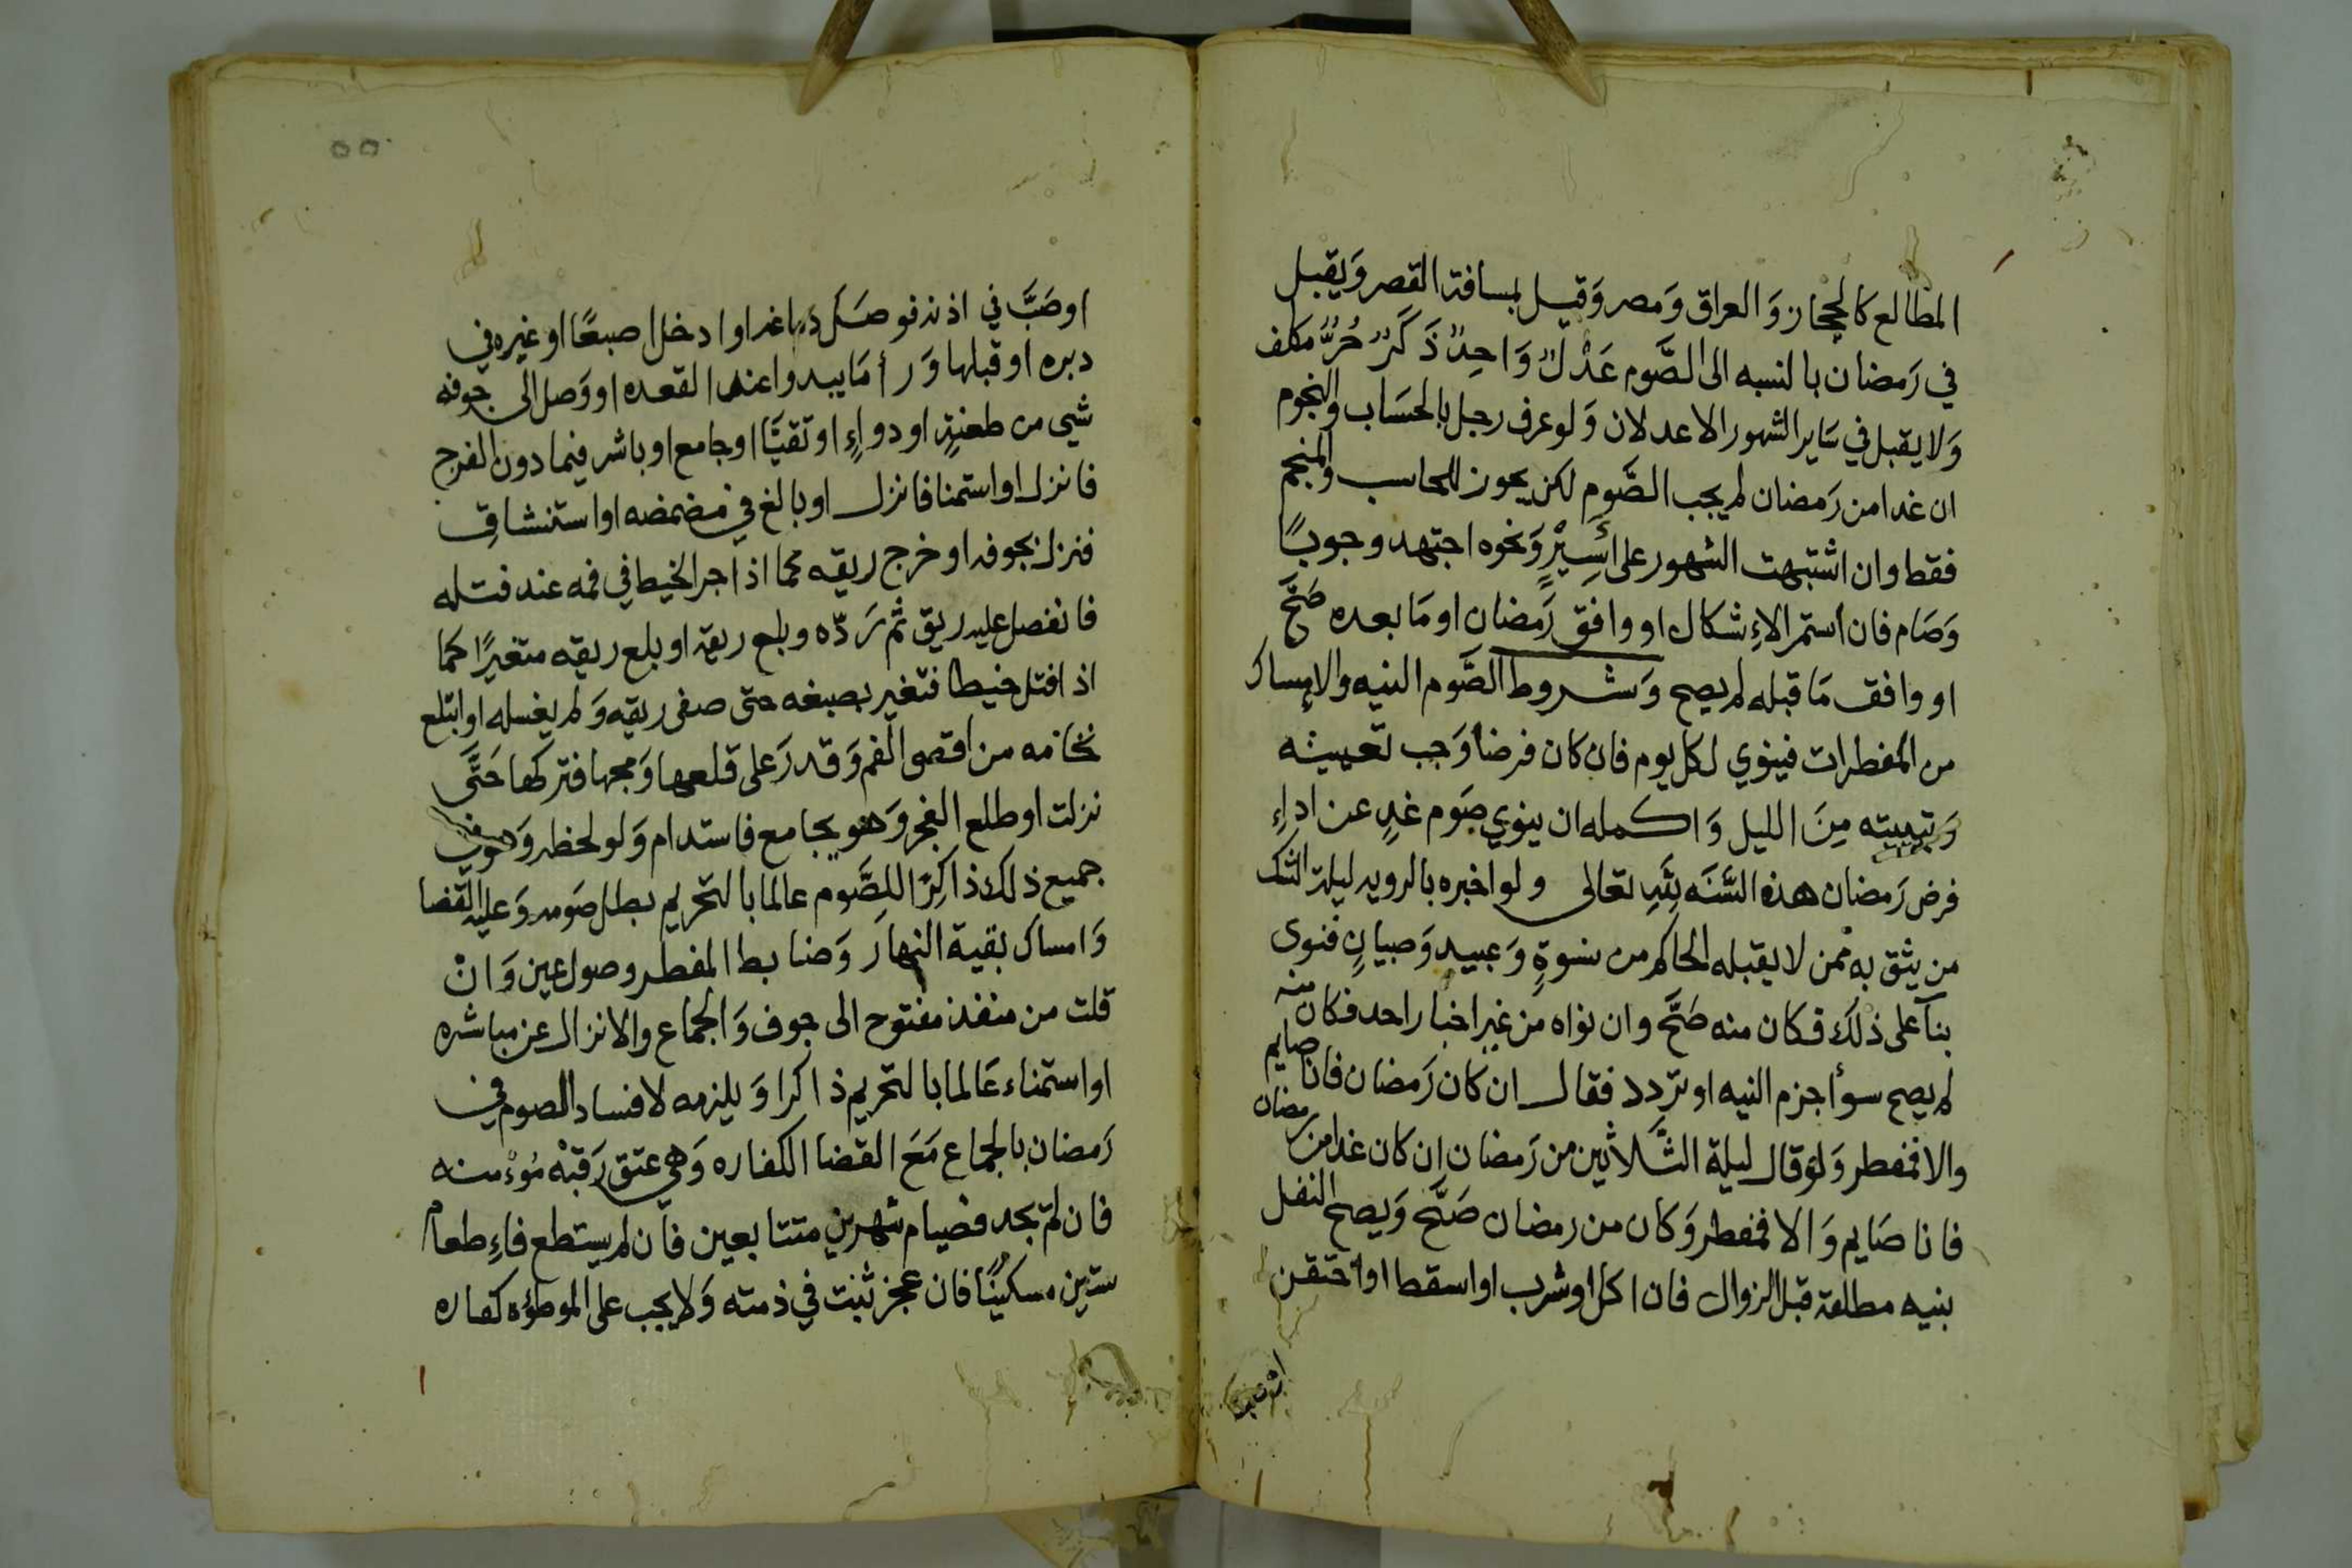 المطالع كالحجاز وَالعراق وَمصر وَقيل بمسافة القصر وَيقبل
في رَمضان بالنسبه الى الصَّوم عَدْلٌ وَاحِدٌ ذَكَرٌ حُرٌّ مكلف
وَلا يقبل في سَاير الشهور الا عدلان وَلو عرف رجل بالحسَاب والنجوم
ان غدا من رَمضان لم يجب الصَّوم لكن يجوز للحاسب والمنجم
فقط وان اشتبهت الشهور على أَسِيْرٍ وَنحوه اجتهد وجوبًا
وَصَام فان استمر الاشكال او وافق رَمضان او مَا بعده صَحَّ
او وافق مَا قبله لم يصح وَشروط الصَّوم النيه والامساك
من المفطرات فينوي لكل يوم فان كان فرضا وَجب تعيينه
وَتبييته مِنَ الليل وَاكمله ان ينوي صَوم غدٍ عن اداءِ
فرض رَمضان هذه السَّنَه لِلَّهِ تعالى ولو اخبره بالرويه ليلة الشك
من يثق به ممن لا يقبله الحاكم من نسوةٍ وَعبيد وَصبيانٍ فنوى
بنآ على ذلك فكان منه صَحَّ وان نواه من غير اخبار احد فكان منه
لم يصح سوأ جزم النيه او تردد فقال ان كان رَمضان فانا صايم
والا فمفطر وَلو قال ليلة الثَّلاثين من رَمضان ان كان غدا من رمضان
فانا صَايم وَالا فمفطر وَكان من رمضان صَحَّ وَيصح النفل
بنيه مطلقة قبل الزوال فان اكل او شرب او اسقط او احتقن
او صَبَّ
٥٥
او صَبَّ في اذنه فوصَل دماغه او ادخل اصبعًا او غيره في
دبره او قبلها وَرأ مَا يبدوا عند القعده او وَصل الى جوفه
شي من طعنةٍ او دواءٍ او تقيَّا او جامع او باشر فيما دون الفرج
فانزل او استمنا فانزل او بالغ في مضمضه او استنشاقِ
فنزل بجوفه او خرج ريقه كما اذا جر الخيط في فمه عند فتله
فانفصل عليه ريق ثم رَدّه وبلع ريقه او بلع ريقه متغيرًا كما
اذا فتل خيطا فتغير بصبغه حتى صفى ريقه وَلم يغسله او ابتلع
نخامه من اقصى الفم وَقدرَ على قلعها وَمجها فتركها حَتَّى
نزلت او طلع الفجر وَهو يجامع فاستدام وَلو لحظه وَهو في
جميع ذلك ذاكِرًا للصَّوم عالما بالتحريم بطل صَومه وَعليه القضا
وَامساك بقية النهار وَضابط المفطر وصول عين وَانْ
قلت من منفذ مفتوح الى جوف وَالجماع والانزال عن مباشره
او استمناء عَالما بالتحريم ذاكرا وَيلزمه لافساد الصوم في
رَمضان بالجماع مَعَ القضا الكفاره وَهي عتق رَقبْه مُوْمنه
فان لم يجد فصيام شهرين متتابعين فان لم يستطع فاءِطعام
ستين مسكينًا فان عجز ثبت في ذمته وَلا يجب على الموطؤه كفاره